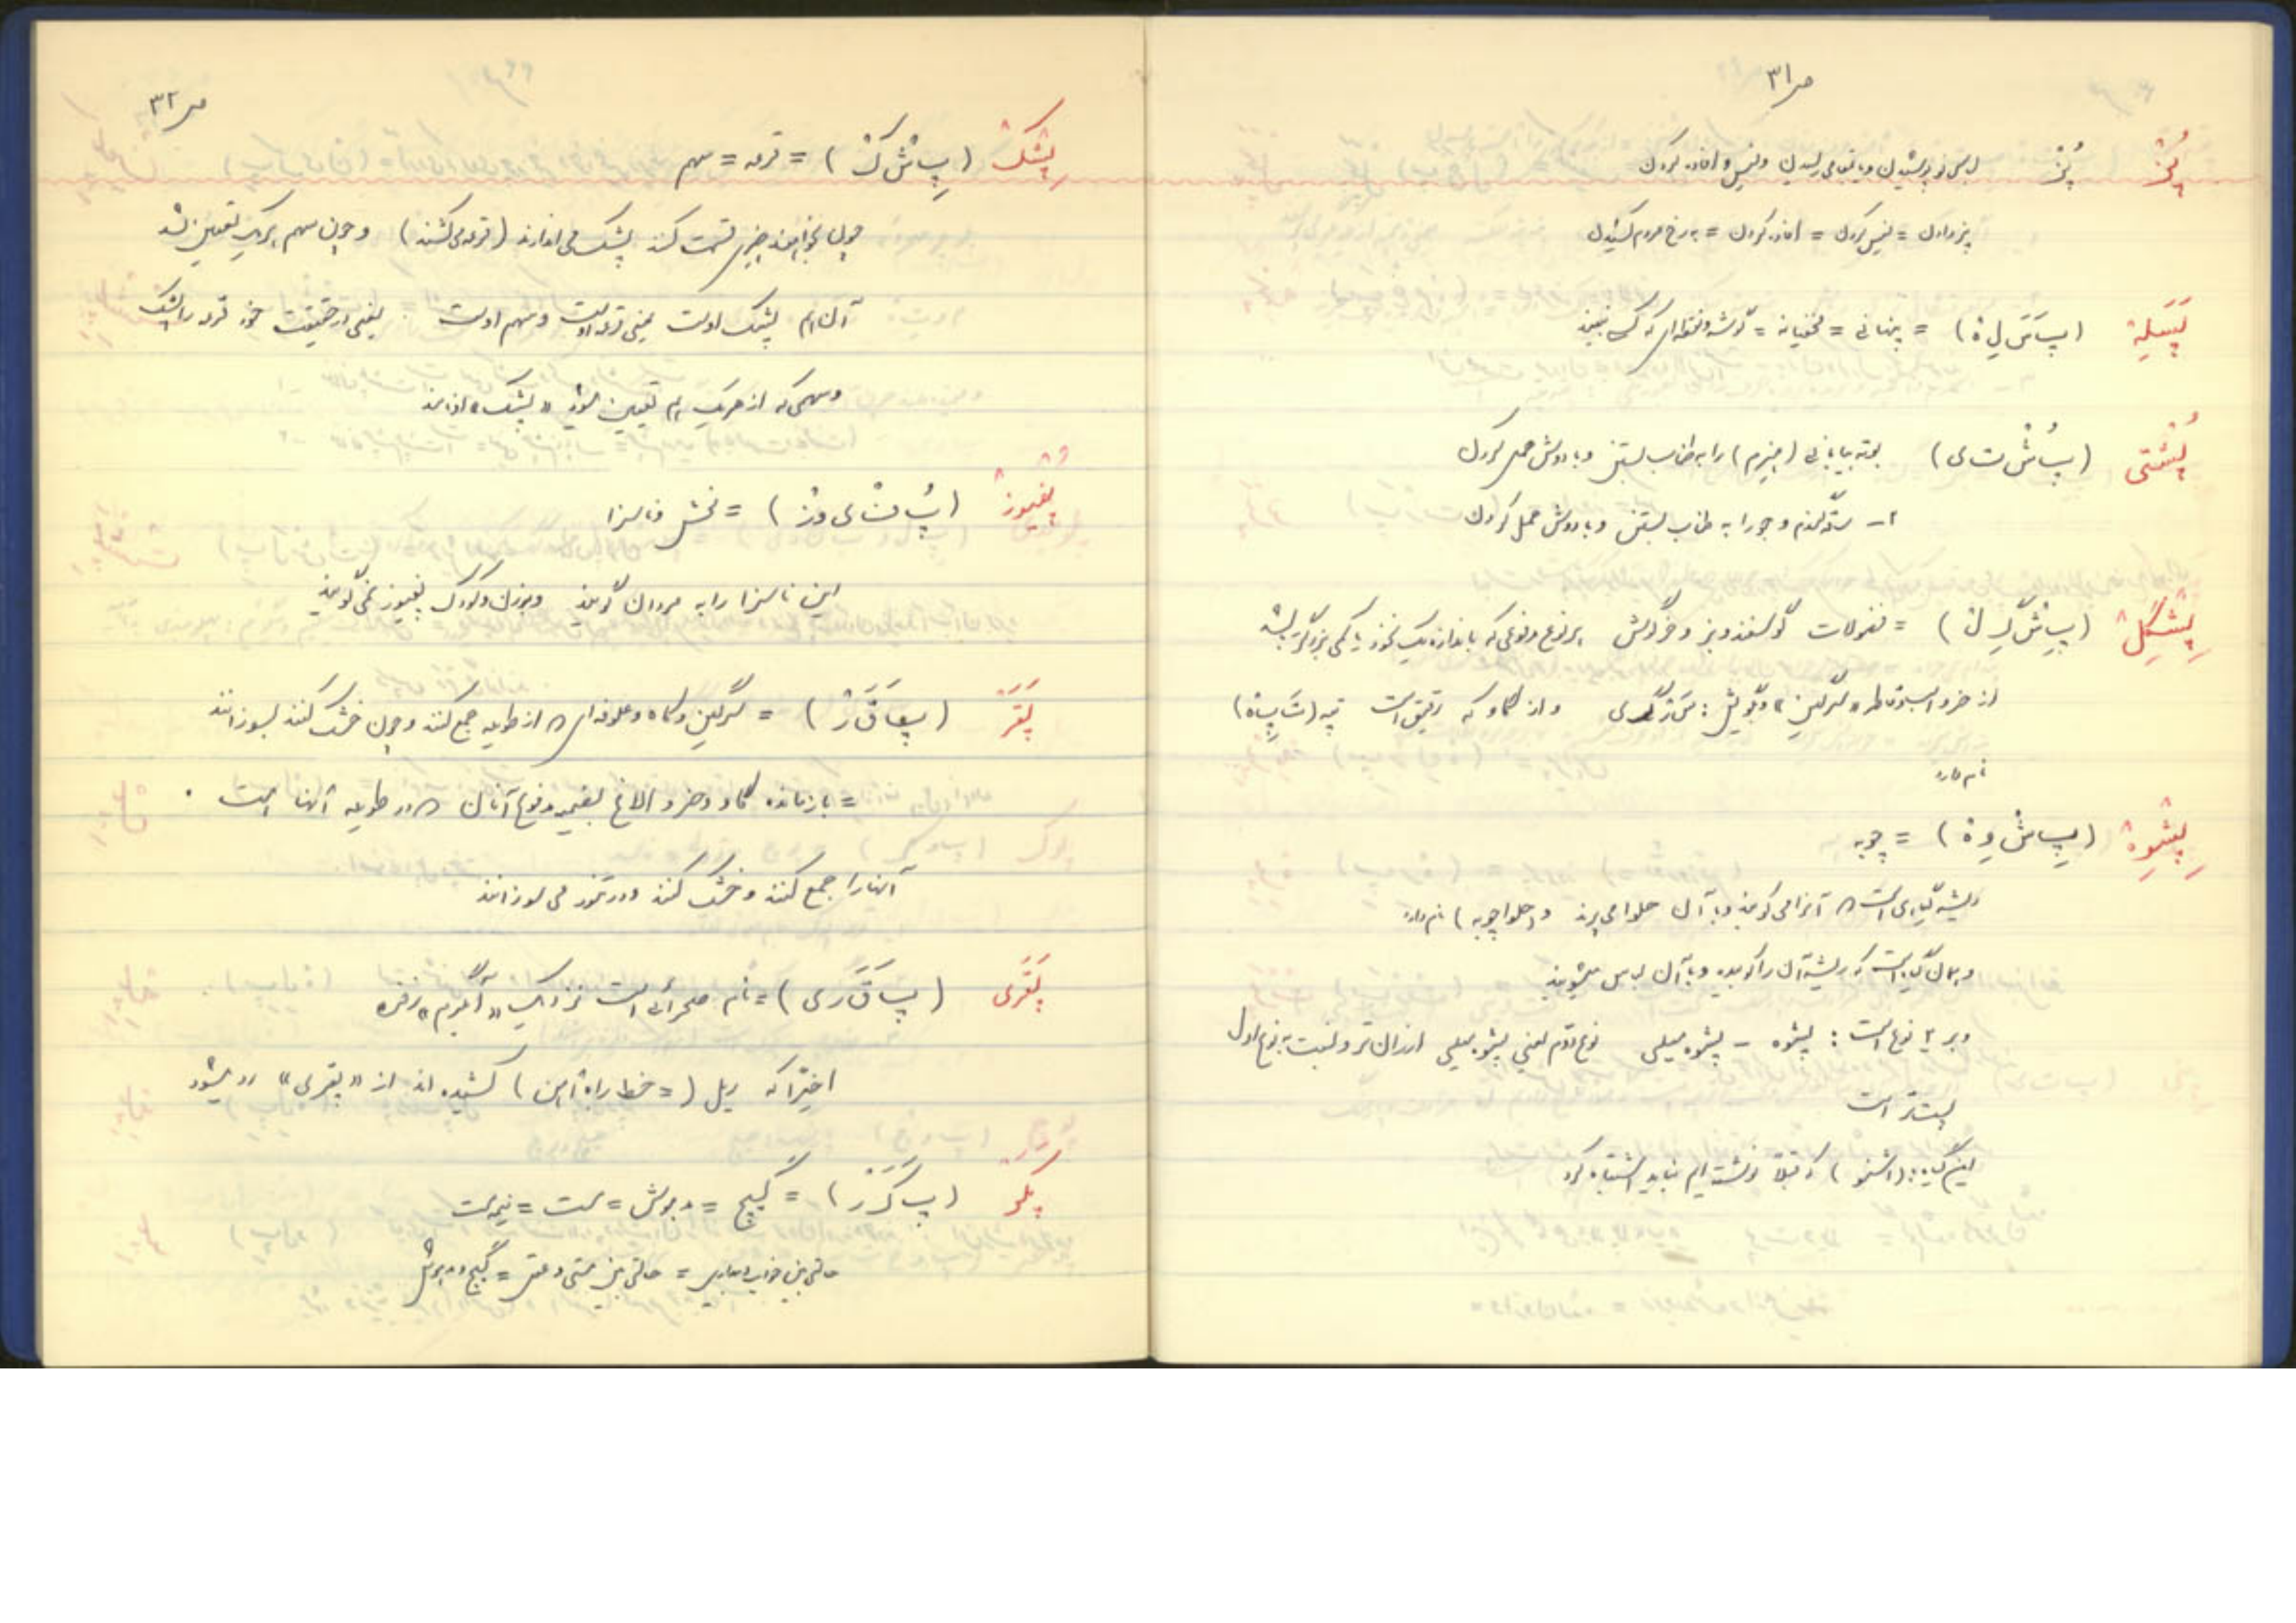 ص ۳۱
پُز پُز لباس نو پوشیدن و به مقامی رسیدن و فیس و افاده کردن
پز دادن = فیس کردن = افاده کردن = به رخ مردم کشیدن
پَسَلِهْ (پَ سَ لِ هْ) = پنهانی = مخفیانه = گوشه و نقطه‌ای که کس نبیند
پُشْتی (پُ شْ ت ی) بوته بیابانی (هیزم) را به طناب بستن و با دوش حمل کردن
۲- ساقه گندم و جو را به طناب بستن و با دوش حمل کردن
پِشْگِلْ (پِ شْ گِ لْ) = فضولات گوسفند و بز و خرگوش هر نوع مدفوعی که باندازه یک نخود یا کمی بزرگتر باشد
از خر و اسب و قاطر «سرگین» و گویش: سَ رْ گ ی و از گاو که رقیق است تپه (تَ پِ هْ)
نام دارد
پِشْوِهْ (پِ شْ وِ هْ) = چوبه
ریشه گیاهی است که آنرا می‌کوبند و با آن حلوا می‌پزند و (حلوا چوبه) نام دارد
و همان گیاه است که ریشه آن را کوبیده و با آن لباس میشویند
و بر ۲ نوع است: پشوه - پشوه میلی نوع دوم یعنی پشوه میلی ارزان‌تر و نسبت به نوع اول
پست‌تر است
این گیاه با (اشنو) که قبلاً نوشته‌ایم نباید اشتباه کرد
ص ۳۲
پِشْکْ (پِ شْ کْ) = قرعه = سهم
چون بخواهند چیزی قسمت کنند پشک می‌اندازند (قرعه می‌کشند) و چون سهم هر یک تعیین شد
آن هم پشک اوست یعنی قرعه اوست و سهم اوست یعنی در حقیقت خود قرعه را پشک
و سهمی که از هر یک هم تعیین میشود «پشک» نامند
پُفْیوزْ (پُ فْ ی و زْ) = فحش و ناسزا
این ناسزا را به مردان گویند و به زن و کودک پفیوز نمی‌گویند
پَقَرْ (پَ قَ رْ) = سرگین و کاه و علوفه‌ای که از طویله جمع کنند و چون خشک کنند بسوزانند
= باز مانده گاو و خر و الاغ بقیه مدفوع آنان که در طویله آنها است .
آنها را جمع کنند و خشک کنند و در تنور می‌سوزانند
پَقَری (پَ قَ ر ی) = نام صحرائی است نزدیک «آبگرم» رفته
اخیراً که ریل (= خط راه آهن) کشیده‌اند از «پقری» رد میشود
پَکَرْ (پَ کَ رْ) = گیج = مدهوش = مست = نیمه مست
حالتی بین خواب و بیداری = حالتی بین مستی و عقل = گیج و مدهوش